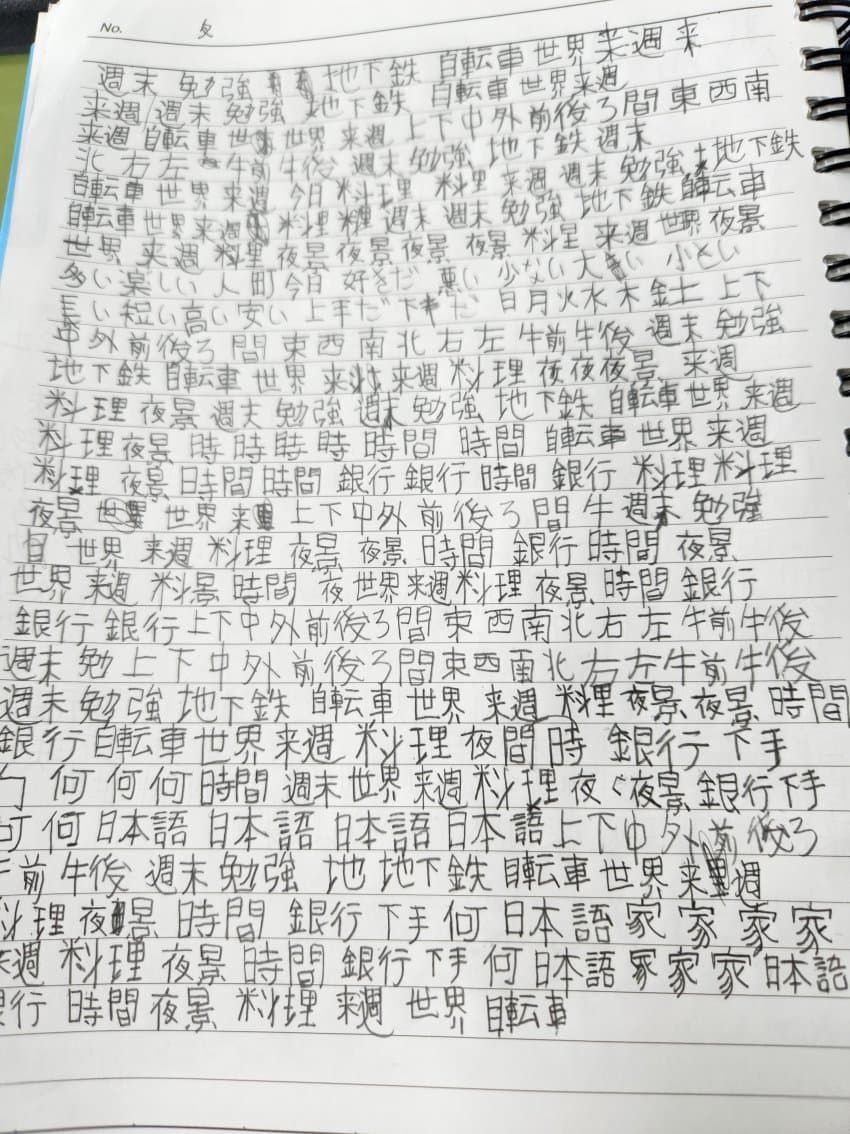 No. 夂
週末 勉強 地下鉄 自転車 世界 来週 来
来週 週末 勉強 地下鉄 自転車 世界来週
来週 自転車 世 世界 来週 上下中外前後ろ間東西南
北右左 午前午後 週末 勉強 地下鉄 週末
自転車 世界 来週 今日 料理 料理 来週 週末 勉強 地下鉄
自転車 世界来週 料理 料理 週末 週末 勉強 地下鉄 自転車
世界 来週 料理 夜景 夜景 夜景 夜景 料理 来週 世界 夜景
多い 楽しい 人 町 今日 好きだ 悪い 少ない 大きい 小さい
長い 短い 高い 安い 上手だ 下手だ 日月火水木金土 上下
中外前後ろ間東西南北右左 午前午後 週末 勉強
地下鉄 自転車 世界 来 来週 料理 夜夜夜景 来週
料理 夜景 週末 勉強 週末 勉強 地下鉄 自転車 世界 来週
料理 夜景 時 時 時 時 時間 時間 自転車 世界 来週
料理 夜景 時間 時間 銀行 銀行 時間 銀行 料理 料理
夜景 世界 来 上下中外前後ろ間 午 週末 勉強
自 世界 来週 料理 夜景 夜景 時間 銀行 時間 夜景
世界 来週 料景 時間 夜 世界 来週 料理 夜景 時間 銀行
銀行 銀行 上下中外前後ろ間東西南北右左 午前午後
週末 勉 上下中外前後ろ間東西南北右左午前午後
週末 勉強 地下鉄 自転車 世界 来週 料理 夜景 夜景 時間
銀行 自転車 世界 来週 料理 夜間 時 銀行 下手
何 何 何 時間 週末 世界 来週 料理 夜 夜景 銀行 下手
何 何 日本語 日本語 日本語 日本語 上下中外前後ろ
午前 午後 週末 勉強 地 地下鉄 自転車 世界 来 週
料理 夜景 時間 銀行 下手 何 日本語 家 家 家 家
来週 料理 夜景 時間 銀行 下手 何 日本語 家 家 家 日本語
銀行 時間 夜景 料理 来週 世界 自転車